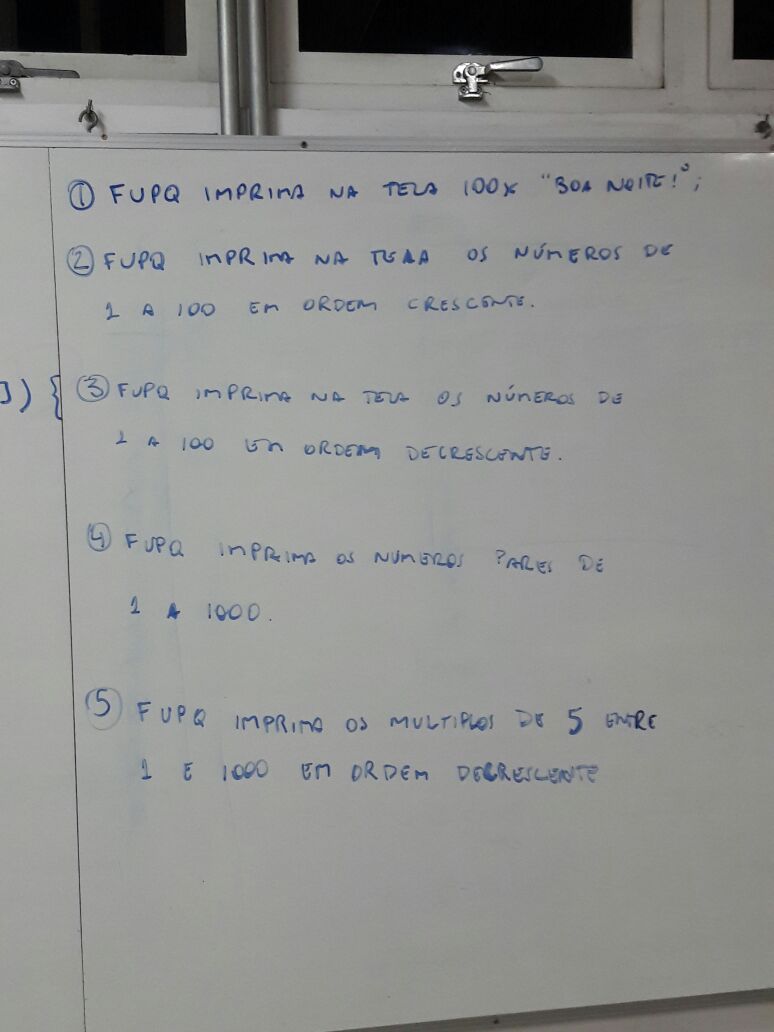 ]) {
① FUPQ IMPRIMA NA TELA 100X "BOA NOITE!";
② FUPQ IMPRIMA NA TELA OS NÚMEROS DE
1 A 100 EM ORDEM CRESCENTE.
③ FUPQ IMPRIMA NA TELA OS NÚMEROS DE
1 A 100 EM ORDEM DECRESCENTE.
④ FUPQ IMPRIMA OS NUMEROS PARES DE
1 A 1000.
⑤ FUPQ IMPRIMA OS MULTIPLOS DE 5 ENTRE
1 E 1000 EM ORDEM DECRESCENTE